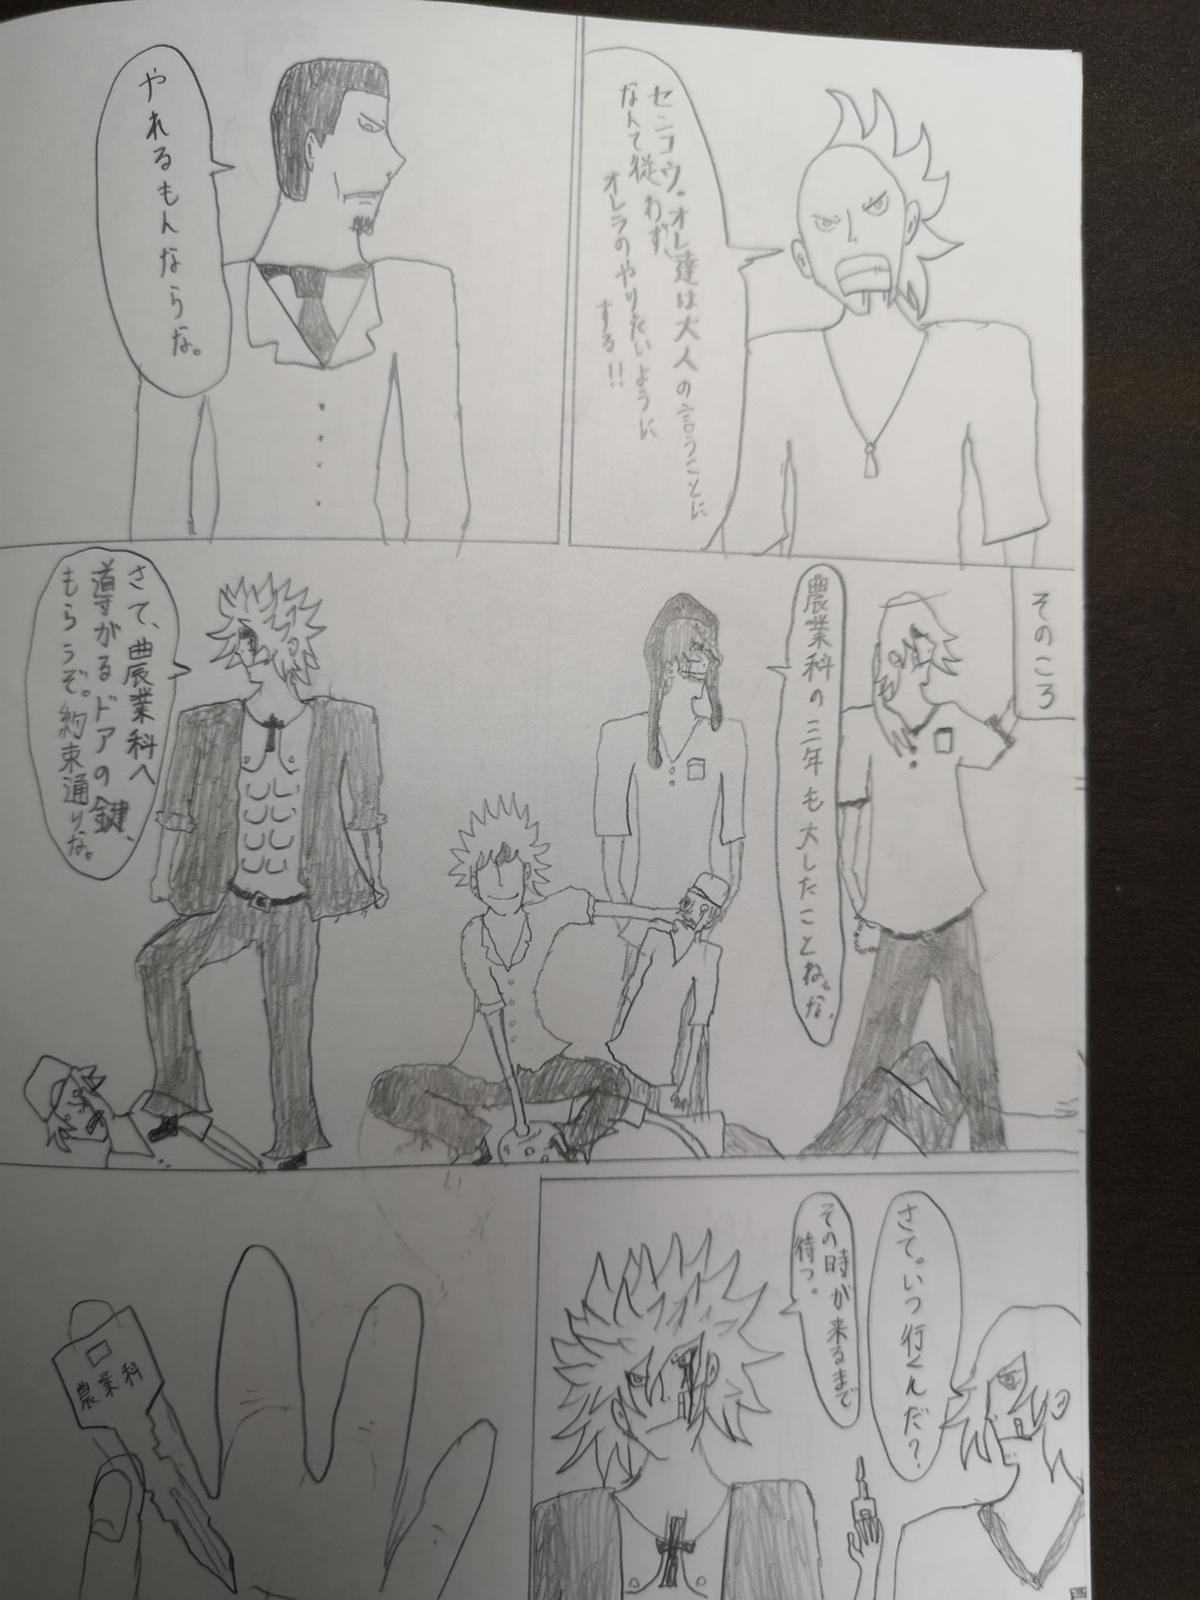 センコウ。オレ達は大人の言うことに
なんて従わず
オレラのやりたいように
する!!
やれるもんならな。
そのころ
農業科の三年も大したことねぇな、
さて、農業科へ
導がるドアの鍵、
もらうぞ。約束通りな。
さて。いつ行くんだ?
その時が来るまで
待つ。
農業科